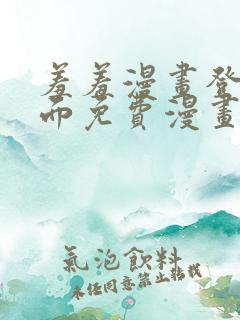 羞羞漫畫登
而免費漫畫
氣泡飲料
未經同意禁止轉載